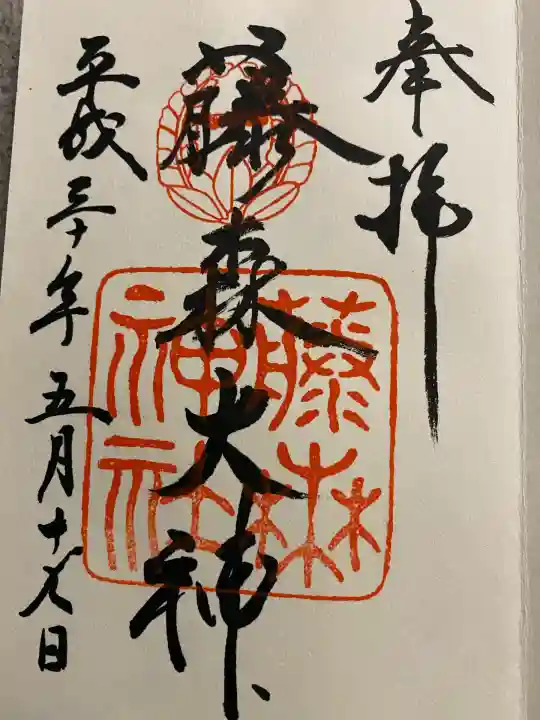 奉拝
藤森大神
藤森
神社
平成三十年五月十七日